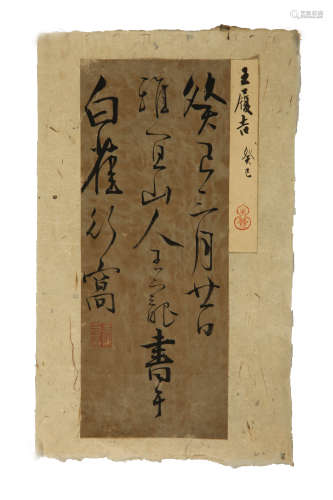 王履吉 癸巳
癸巳三月廿日
雅宜山人王寵書于
白雀行窩